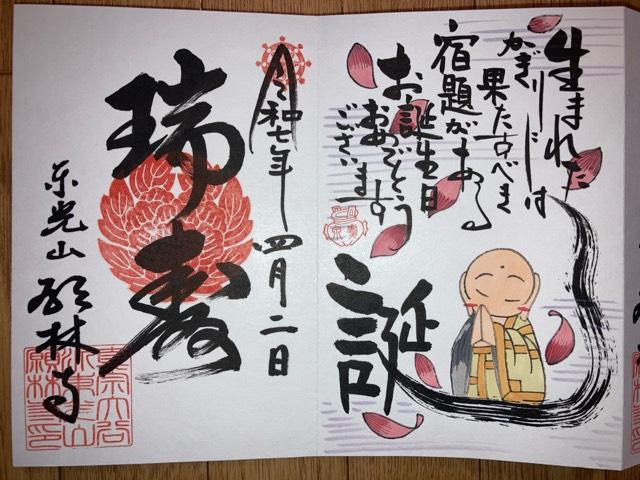 生まれた
かぎりには
果たすべき
宿題がある
お誕生日
おめでとう
ございます
誕
令和七年 四月二日
瑞寿
願林寺